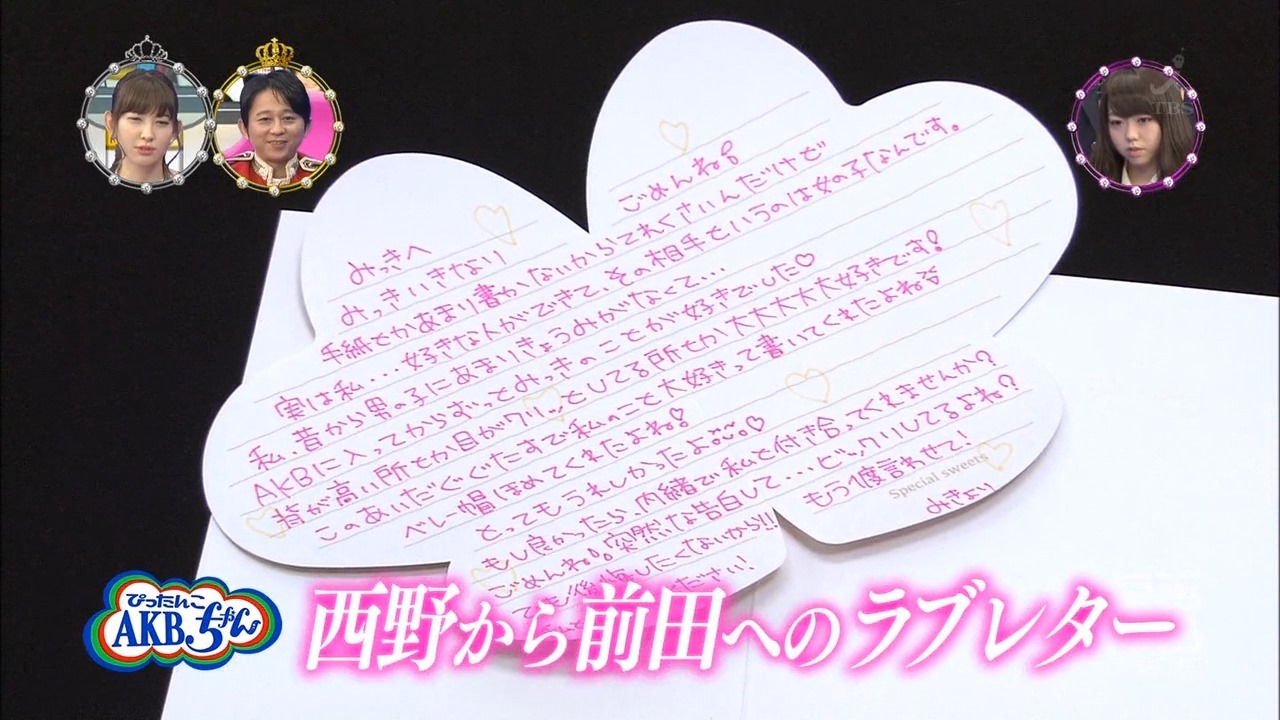 TBS
みっきへ
みっきいきなり
ごめんね
手紙とかあまり書かないからてれくさいんだけど
実は私...好きな人ができて、その相手というのは女の子なんです。
私、昔から男の子にあまりきょうみがなくて...
AKBに入ってからずっとみっきのことが好きでした♡
背が高い所とか目がクリッとしてる所とか大大大大好きです!
このあいだぐぐたすで私のこと大好きって書いてくれたよね
ベレー帽ほめてくれたよね
とってもうれしかったよ
もし良かったら、内緒で私と付き合ってくれませんか?
ごめんね 突然な告白して...ビックリしてるよね?
でも後悔したくないから!!もう1度言わせて!
ださい!
みきより
Special sweets
ぴったんこ
AKB.ちゃん
西野から前田へのラブレター